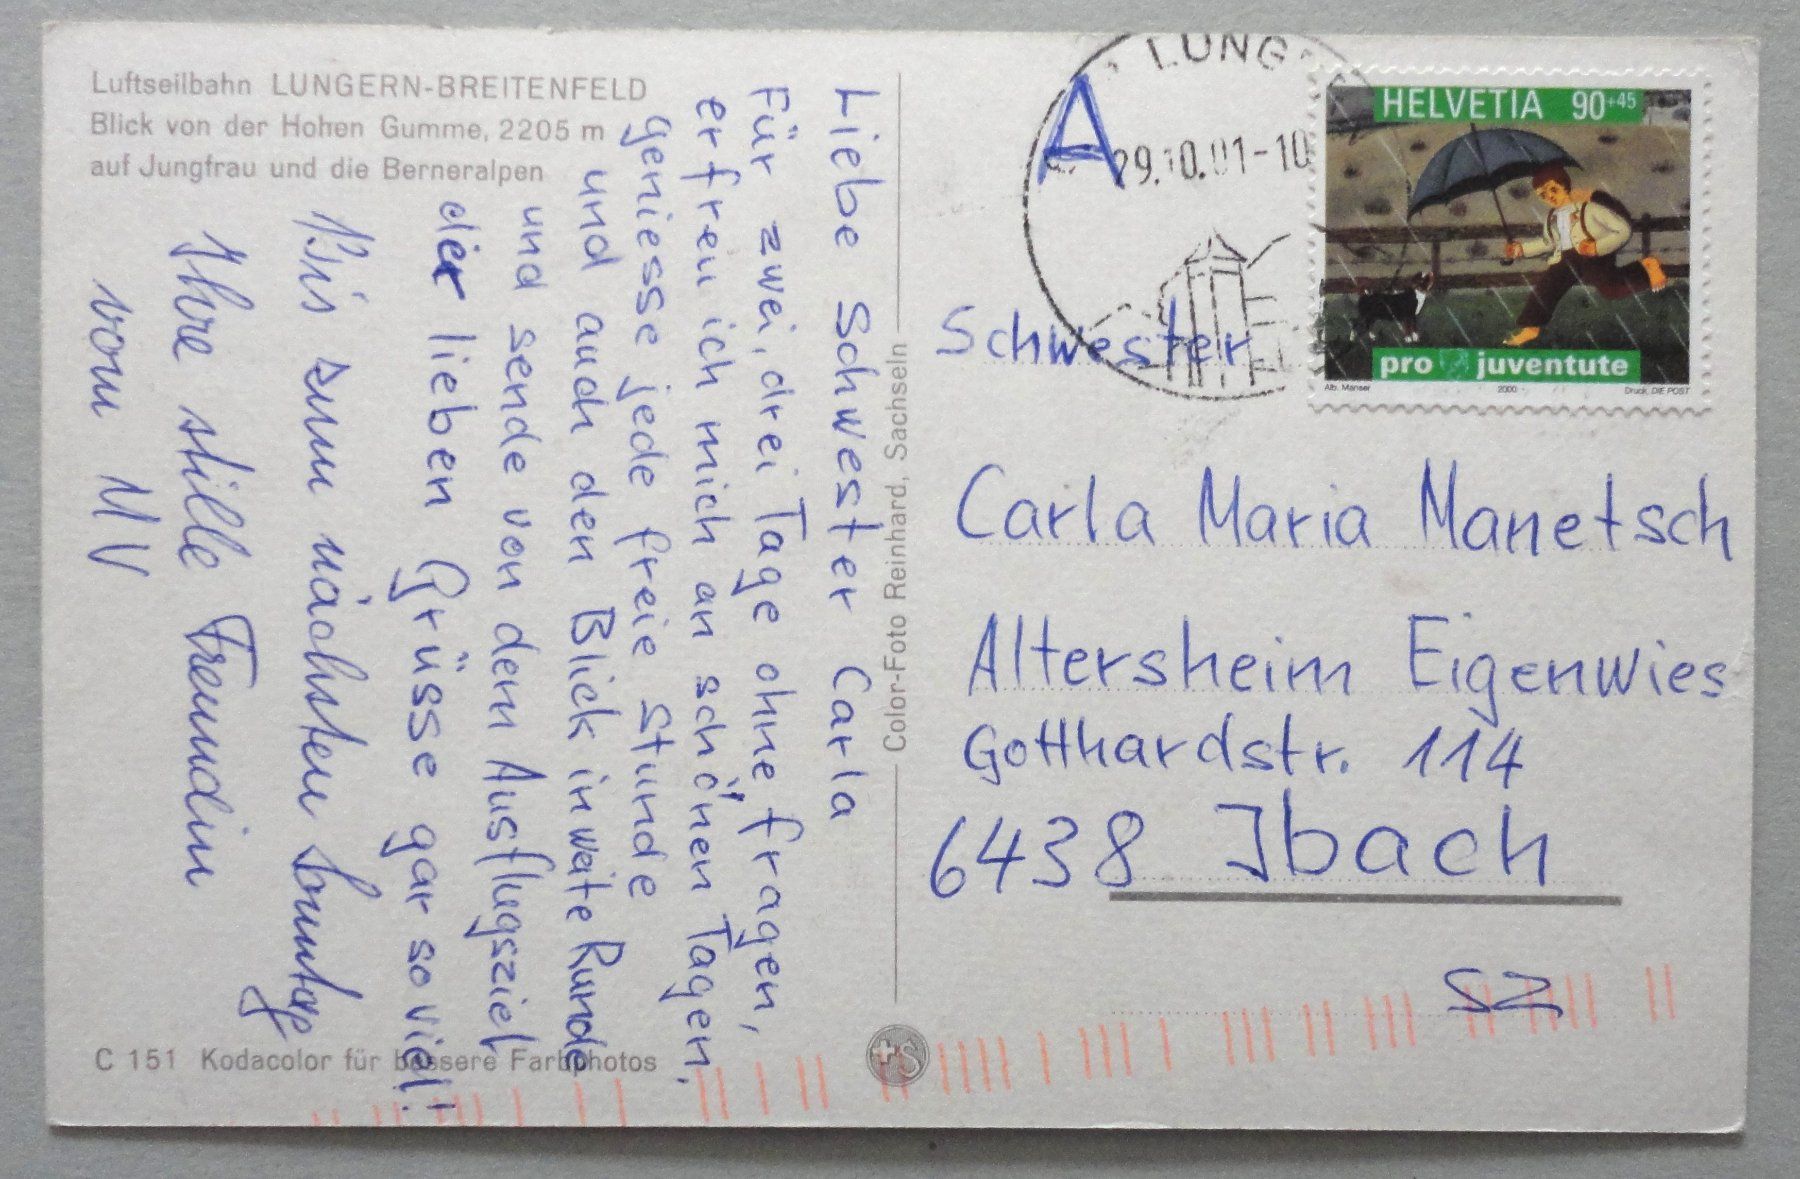 Luftseilbahn LUNGERN-BREITENFELD
Blick von der Hohen Gumme, 2205 m
auf Jungfrau und die Berneralpen
Liebe Schwester Carla
Für zwei, drei Tage ohne fragen,
erfreu ich mich an schönen Tagen,
geniesse jede freie Stunde
und auch den Blick in weite Runde
und sende von dem Ausflugsziel
der lieben Grüsse gar so viel!
Bis zum nächsten Sonntag
Ihre stille Freundin
vom MV
C 151 Kodacolor für bessere Farbphotos
Color-Foto Reinhard, Sachseln
A
LUNG
29.10.01-10
HELVETIA 90+45
pro juventute
Alb. Manser 2000 Druck, DIE POST
Schwester
Carla Maria Manetsch
Altersheim Eigenwies
Gotthardstr. 114
6438 Ibach
SZ